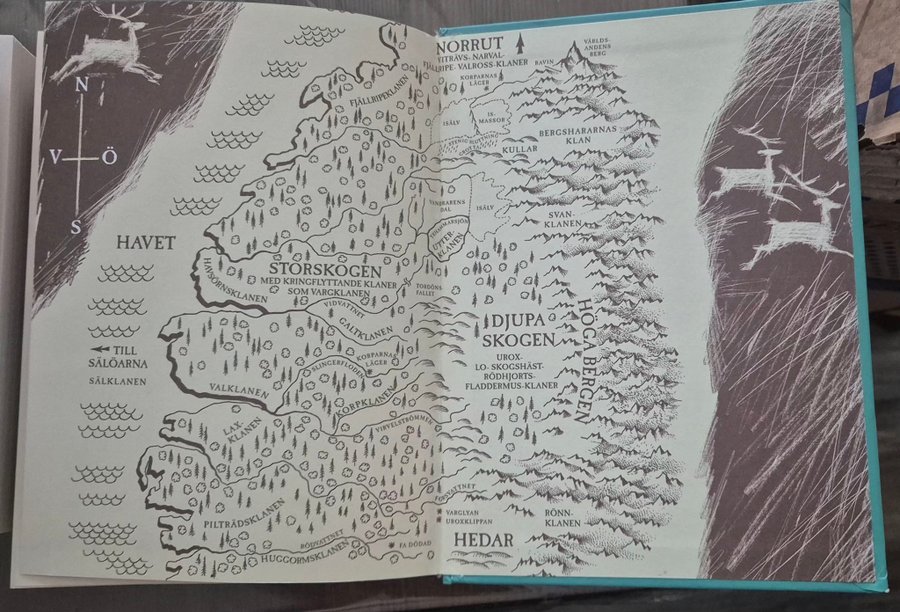 N
V Ö
S
HAVET
TILL
SÄLÖARNA
SÄLKLANEN
FJÄLLRIPEKLANEN
HAVSÖRNSKLANEN
STORSKOGEN
MED KRINGFLYTTANDE KLANER
SOM VARGKLANEN
VIDVATTNET
GALTKLANEN
SLINGERFLODEN
KORPARNAS
LÄGER
VALKLANEN
KORPKLANEN
VIRVELSTRÖMMEN
LAX-
KLANEN
PILTRÄDSKLANEN
RÖDVATTNET
HUGGORMSKLANEN
FA DÖDAD
NORRUT
VITRÄVS- NARVAL-
RIPE- VALROSS-KLANER
KORPARNAS
LÄGER
RAVIN
VÄRLDS-
ANDENS
BERG
ISÄLV
IS-
MASSOR
KULLAR
BERGSHARARNAS
KLAN
DAL
ISÄLV
UTTER-
KLANEN
SVAN-
KLANEN
TORDÖNS-
FALLET
DJUPA
SKOGEN
UROX-
LO- SKOGSHÄST-
RÖDHJORTS-
FLADDERMUS-KLANER
HÖGA BERGEN
VARGLYAN
UROXKLIPPAN
RÖNN-
KLANEN
HEDAR